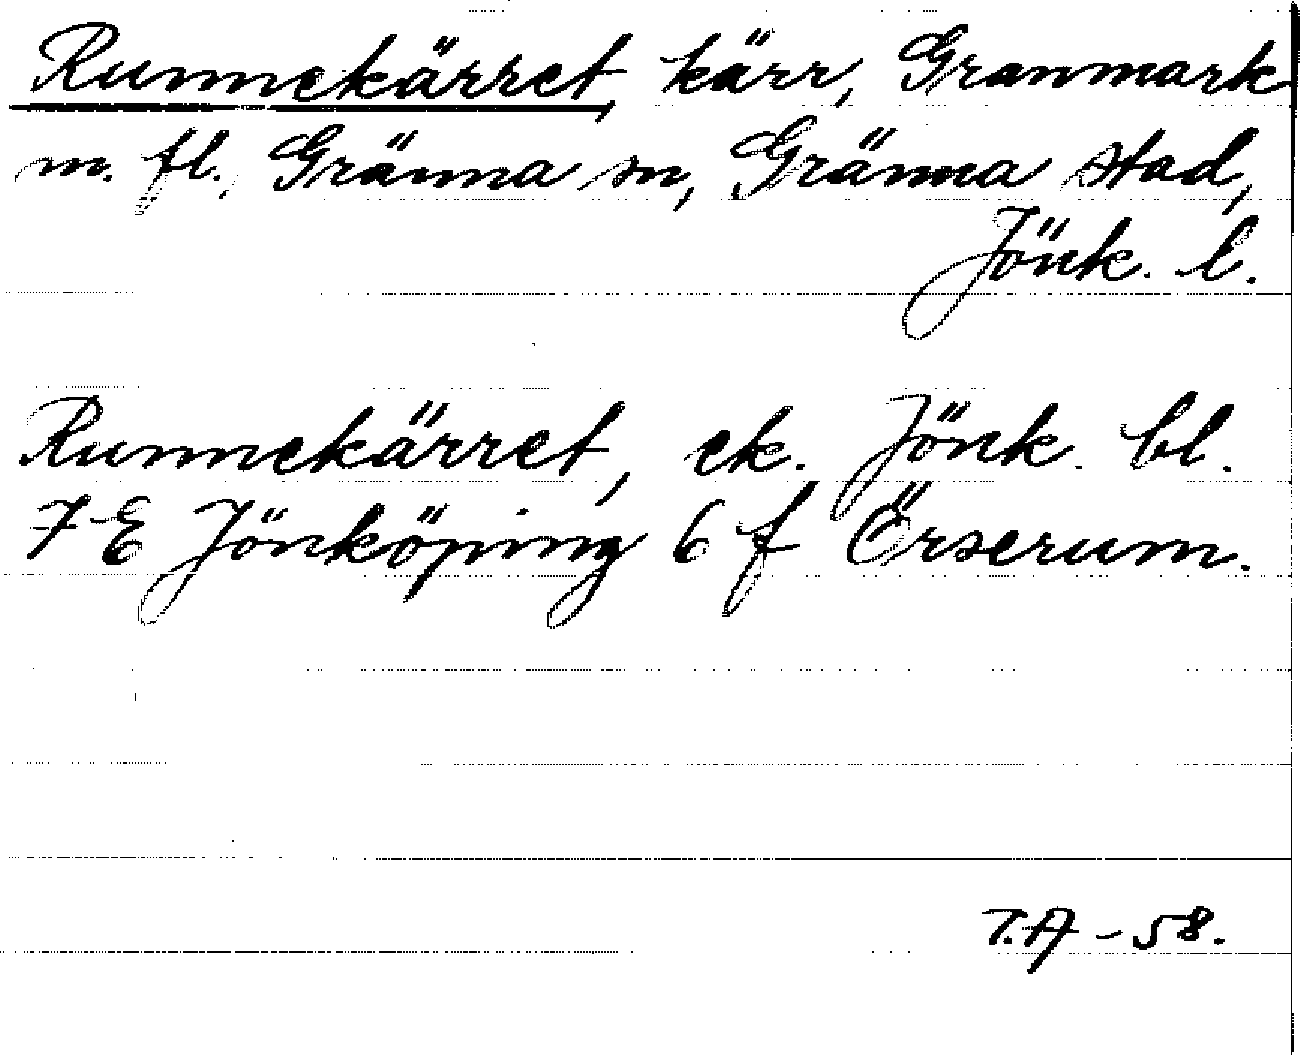 Runnekärret, kärr, Granmark
m. fl., Gränna sn, Gränna stad,
Jönk. l.
Runnekärret, ek. Jönk. bl.
7 E Jönköping 6 f Örserum.
T.A - 58.